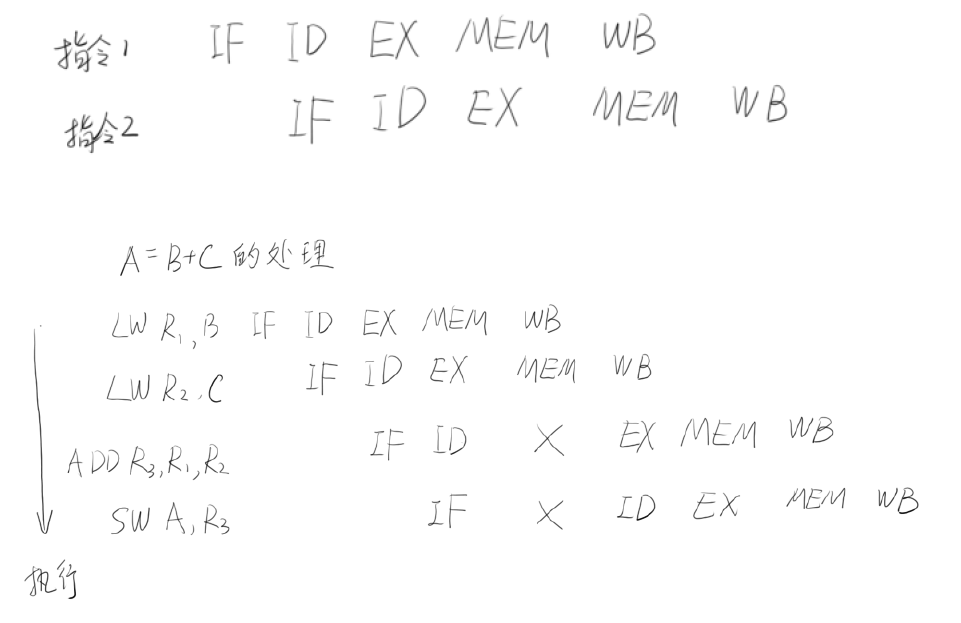 指令1 IF ID EX MEM WB
指令2 IF ID EX MEM WB
A=B+C 的处理
LW R1,B IF ID EX MEM WB
LW R2,C IF ID EX MEM WB
ADD R3,R1,R2 IF ID X EX MEM WB
SW A,R3 IF X ID EX MEM WB
执行